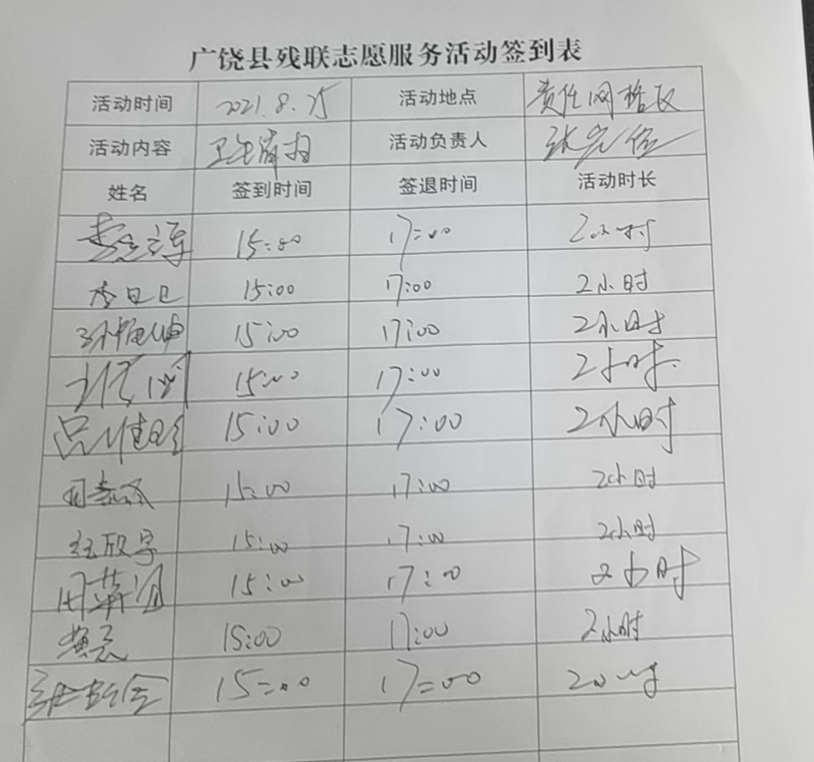 广饶县残联志愿服务活动签到表
活动时间 2021.8.25 活动地点 责任网格区
活动内容 卫生清扫 活动负责人
姓名 签到时间 签退时间 活动时长
15:00 17:00 2小时
15:00 17:00 2小时
15:00 17:00 2小时
15:00 17:00 2小时
15:00 17:00 2小时
15:00 17:00 2小时
15:00 17:00 2小时
15:00 17:00 2小时
15:00 17:00 2小时
15:00 17:00 2小时